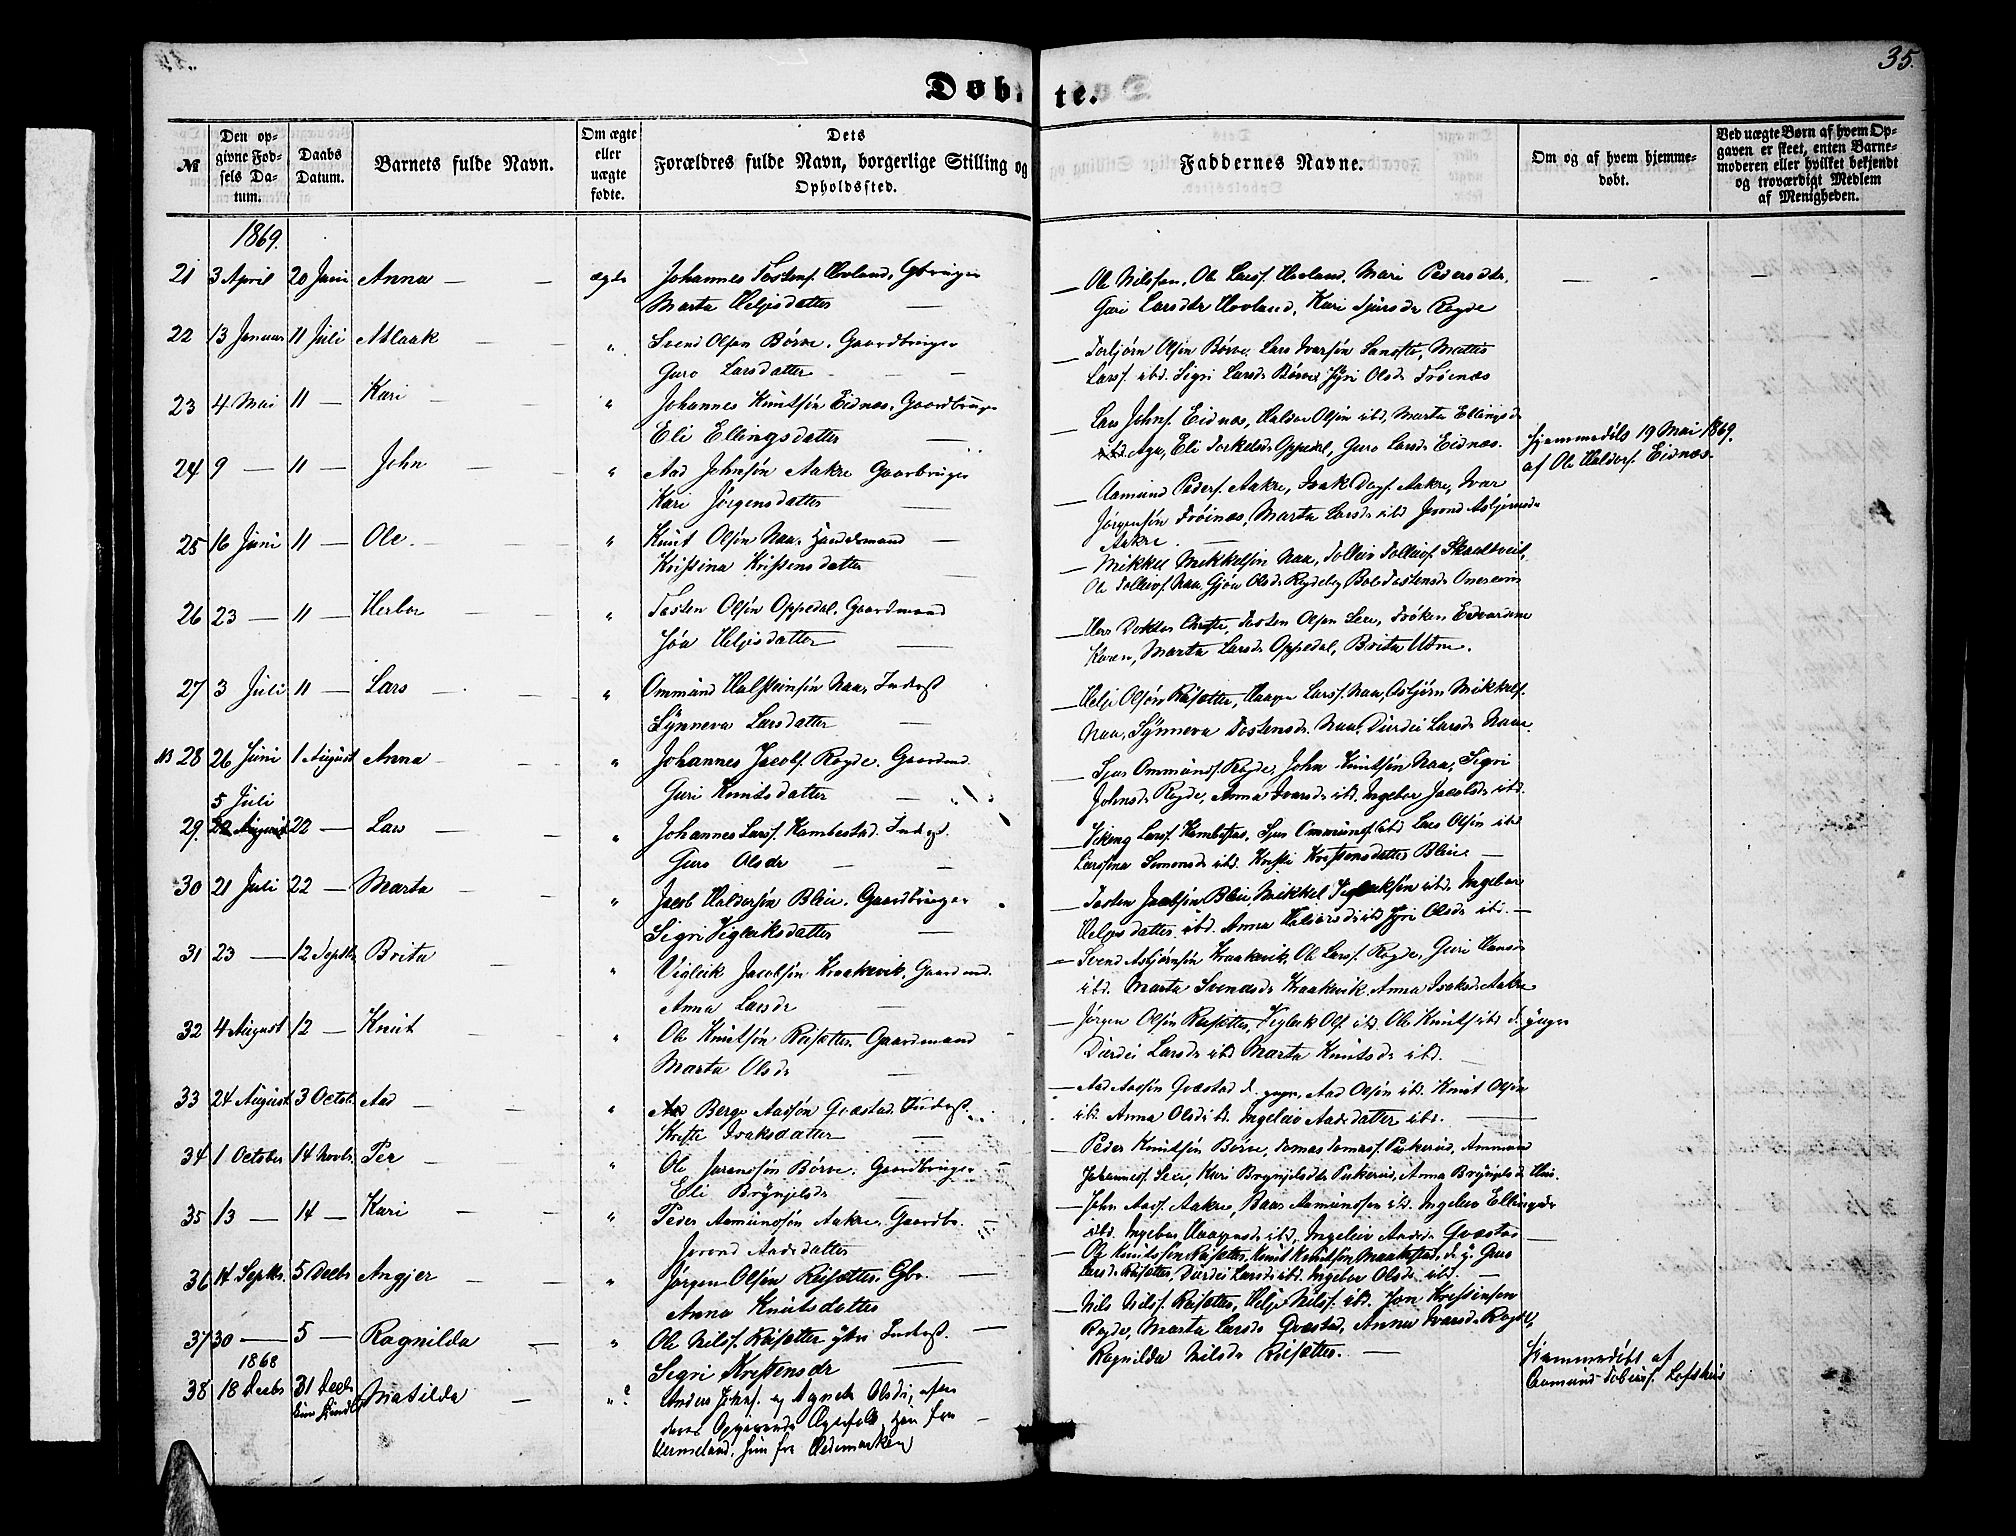 35.
Døbte.
№
Den opgivne Fødsels Datum.
Daabs Datum.
Barnets fulde Navn.
Om ægte eller uægte fødte.
Dets Forældres fulde Navn, borgerlige Stilling og Opholdssted.
Faddernes Navne.
Om og af hvem hjemmedøbt.
Ved uægte Børn af hvem Opgaven er skeet, enten Barnemoderen eller hvilket bekjendt og troværdigt Medlem af Menigheden.
1869.
21 3 April 20 Juni Anna — — ægte Johannes Tostens. Hovland, Gbruger
Marta Heljesdatter —
— Ole Nilssen, Ole Larss. Hovland, Mari Pedersdtr,
Guri Larsdtr Hovland, Kari Sjursdr Rogde
22 13 Januar 11 Juli Aslaak — — " Svend Olsen Børve, Gaardbruger
Guro Larsdatter — —
— Torbjørn Olsøn Børve, Lars Ivarsøn
Larss. ibd. Sigri Larsdr Børve Olsdr Trøenæs
23 4 Mai 11 — Kari — " Johannes Knutsøn Eidnæs, Gaardbruger
Eli Ellingsdatter —
— Lars Johns. Eidnæs, Haldor Olsøn ibd, Marta Ellingsdr
Aga, Eli Torkelsdr Oppedal, Guro Larsdr Eidnæs.
Hjemmedøbt 19 Mai 1869.
af Ole Haldors. Eidnæs.
24 9 — 11 — John — — " Aad Johnsøn Aakre Gaarbruger
Kari Jørgensdatter —
— Aamund Peders. Aakre, Isak Aakre, Ivar
Jørgensøn Trøinæs, Marta Larsdr ibd Asbjørnsdr
Aakre —
25 16 Juni 11 — Ole. — — " Knut Olsøn Naa, Handelsmand —
Kristina Kristensdatter —
— Mikkel Mikkelsøn Naa, Tolleiv Tolleivs.
Ole Tolleivs. Naa, Gjøa Olsdr
26 23 — 11 — Herbor — — " Tosten Olsøn Oppedal, Gaardmand
Jøa Heljesdatter —
— Herr Doktor Christie, Tosten Olsen Frøken
Marta Larsdr Oppedal, Brita Utne.
27 3 Juli 11 — Lars — — " Ommund Halsteinsøn Naa, Inderst
Synneva Larsdatter —
— Helje Olsøn Reisæter, Haagen Larss. Naa, Asbjørn Mikkels.
Naa, Synneva Tostensdr. Naa, Durdei Larsdr Naa.
NB 28 26 Juni 1 August Anna — — " Johannes Jacobs. Rogde, Gaardmd.
Guri Knutsdatter —
— Sjur Ommunds. Rogde, John Knutsøn Naa, Sigri
Johnsdr Rogde, Anna Ivarsdr ibd. Ingebor Jacobsdr ibd.
5 Juli
29. 22 August 22 — Lars — — " Johannes Larss. Kambestad. Inderst.
Guro Olsdr — —
— Viking Larss. Kambestad, Sjur Ommunds. ibd Lars Olsøn ibd
Larsina Simonsdr ibd. Kristi Kristensdatter Bleie —
30 21 Juli 22 — Marta — — " Jacob Haldorsøn Bleie, Gaardbruger
Sigri Vigleiksdatter —
— Tosten Jacobsøn Bleie, Mikkel Vigleiksøn ibd. Ingebor
Heljesdatter ibd. Anna Haldorsdr ibd Olsdr ibd. —
31 23 — 12 Septbr Brita — " Vigleik Jacobsøn Kraakevik, Gaardmd.
Anna Larsdr —
— Svend Asbjørnsøn Kraakevik, Ole Larss. Rogde, Guri Hansdr
ibd. Marta Svendsdr Kraakevik, Anna Isaksdr Aakre
32 4 August 12 — Knut — — " Ole Knutsøn Reisæter. Gaardmand
Marta Olsdr —
— Jørgen Olsøn Reisæter, Vigleik Ols. ibd. Ole Knuts. ibd d. yngre
Durdei Larsdr ibd Marta Knutsdr ibd. —
33 24 August 3 Octob. Aad — — " Berge Aadsøn Qvæstad. Inderst.
Kristi Isaksdatter —
— Aad Aadsøn Qvæstad d. yngre, Aad Olsøn ibd. Knut Olsøn
ibd. Anna Olsdr ibd. Ingeleiv Aadsdatter ibd. —
34 1 October 14 Novbr. Per — — " Ole Børve. Gaardbruger
Eli Brynjelsdr —
— Peder Knutsøn Børve, Tomas Tomass. Ammund
Johanness. Kari Brynjelsdtr Anna Brynjelsdr
35 13 — 14 — Kari — — " Peder Aamundsøn Aakre, Gaardbr. —
Aadsdatter
— John Aads. Aakre, Baar Aamundsen ibd. Ingeleiv Ellingsdr
ibd. Ingebor Haagensdr ibd, Ingeleiv Aadsdr Qvæstad —
36 14 Septbr. 5 Decbr Angjer — — " Jørgen Olsøn Reisæter. Gbr. —
Anna Knutsdatter
— Ole Knutsøn Reisæter, Knut Knutsøn d. y. Guro
Larsdr Reisæter, Durdei Larsdr ibd. Ingebor Olsdr ibd. —
37 30 — 5 — Ragnilda — " Ole Nilss. Reisæter ytre Inderst. —
Sigri Kristensdr —
— Nils Nilss. Reisæter, Helje Nilss. ibd. Jon Kristensøn
Rogde, Marta Larsdr Qvæstad, Anna Ivarsdr Rogde,
Ragnilda Nilsdr Reisæter. —
1868
38 18 Decbr 31 Decbr Matilda — " ? Anders Johns. og Agnete Olsdr, efter
deres Opgivende Ægtefolk, han fra —
Vermeland, hun fra Hedemarken
Hjemmedøbt af
Aamund Lofthus